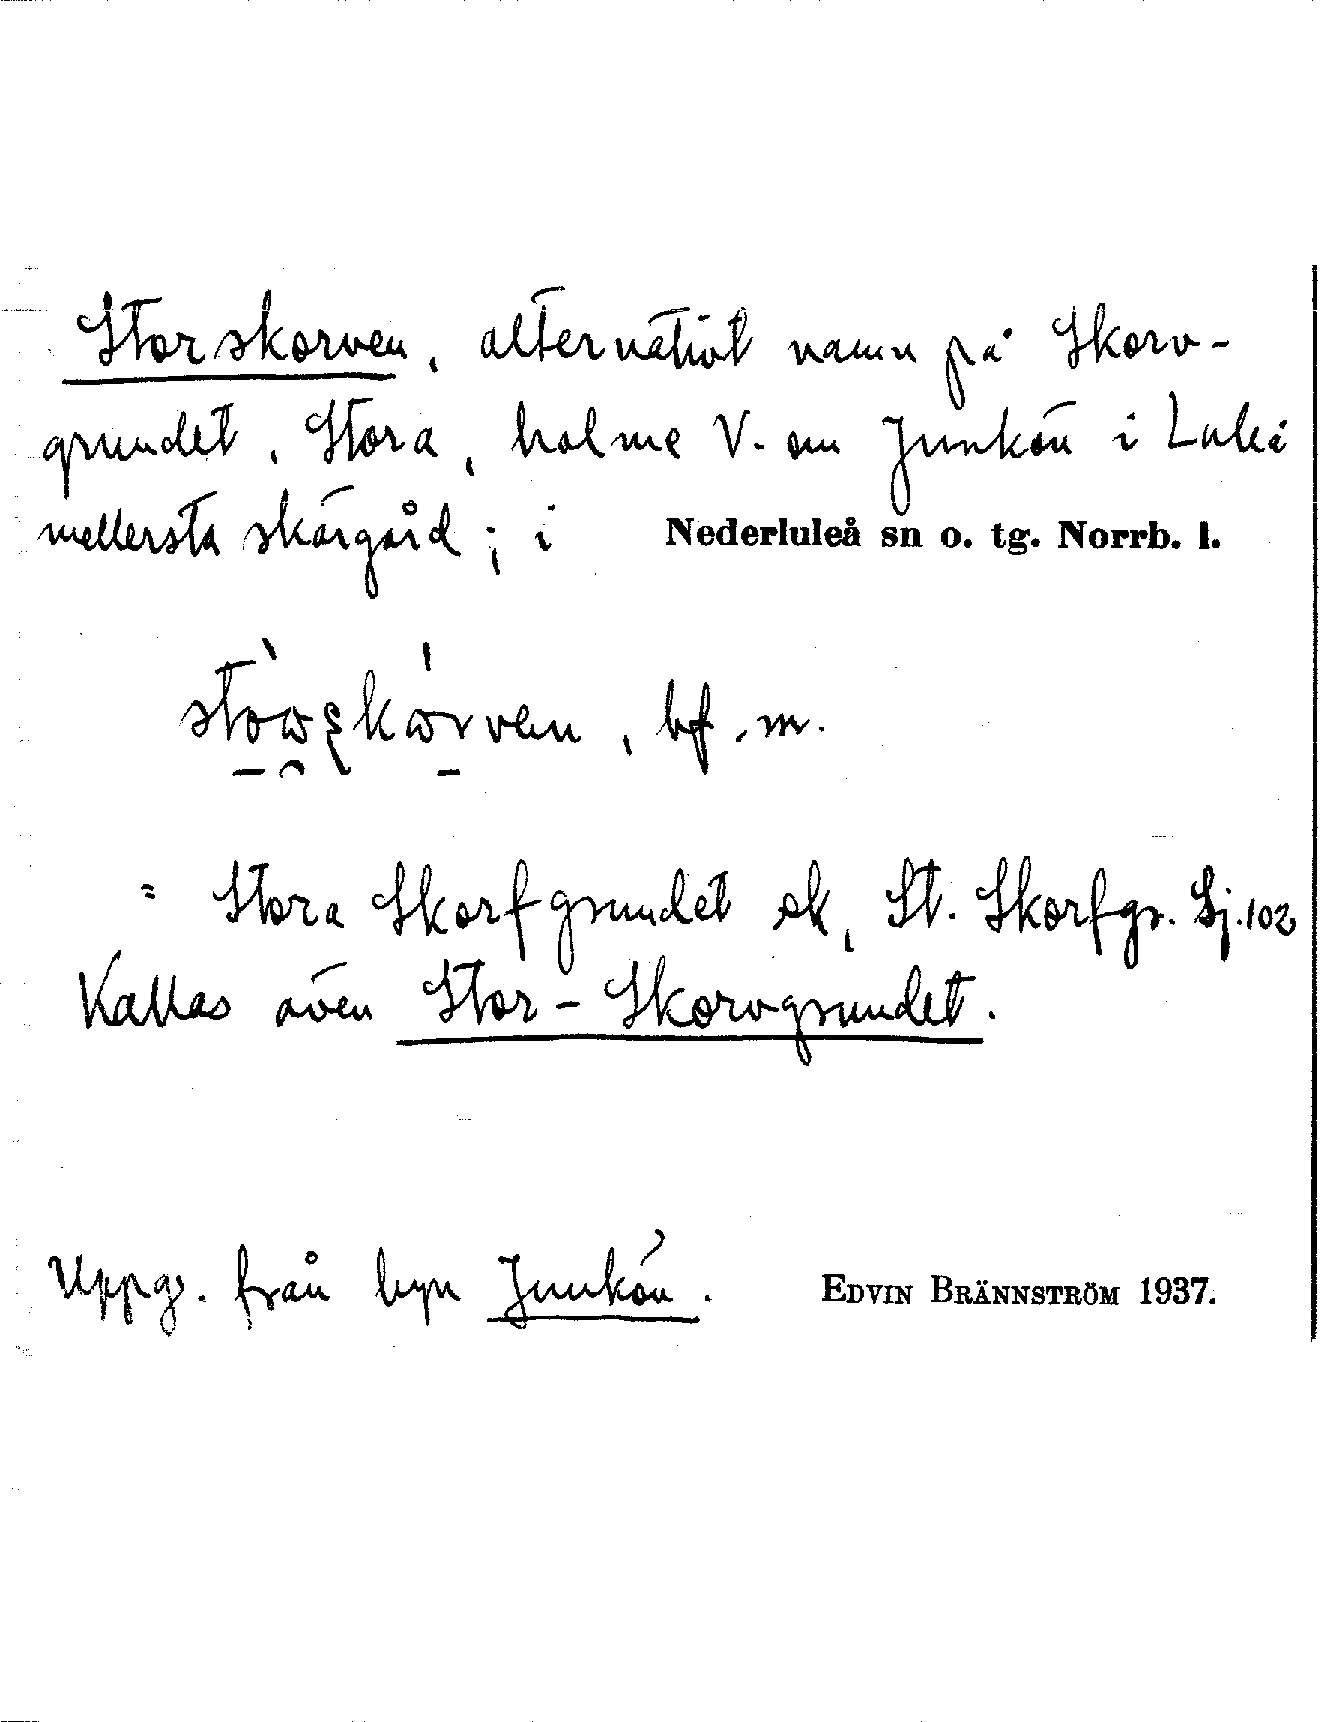 Storskorven, alternativt namn på Skorv-
grundet, Stora, holme V. om Junkön i Luleå
mellersta skärgård; i Nederluleå sn o. tg. Norrb. l.
bf. m.
= Stora Skorfgrundet ek, St. Skorfgr. Sj. 102
Kallas även Stor-Skorvgrundet.
Uppg. från byn Junkön. EDVIN BRÄNNSTRÖM 1937.